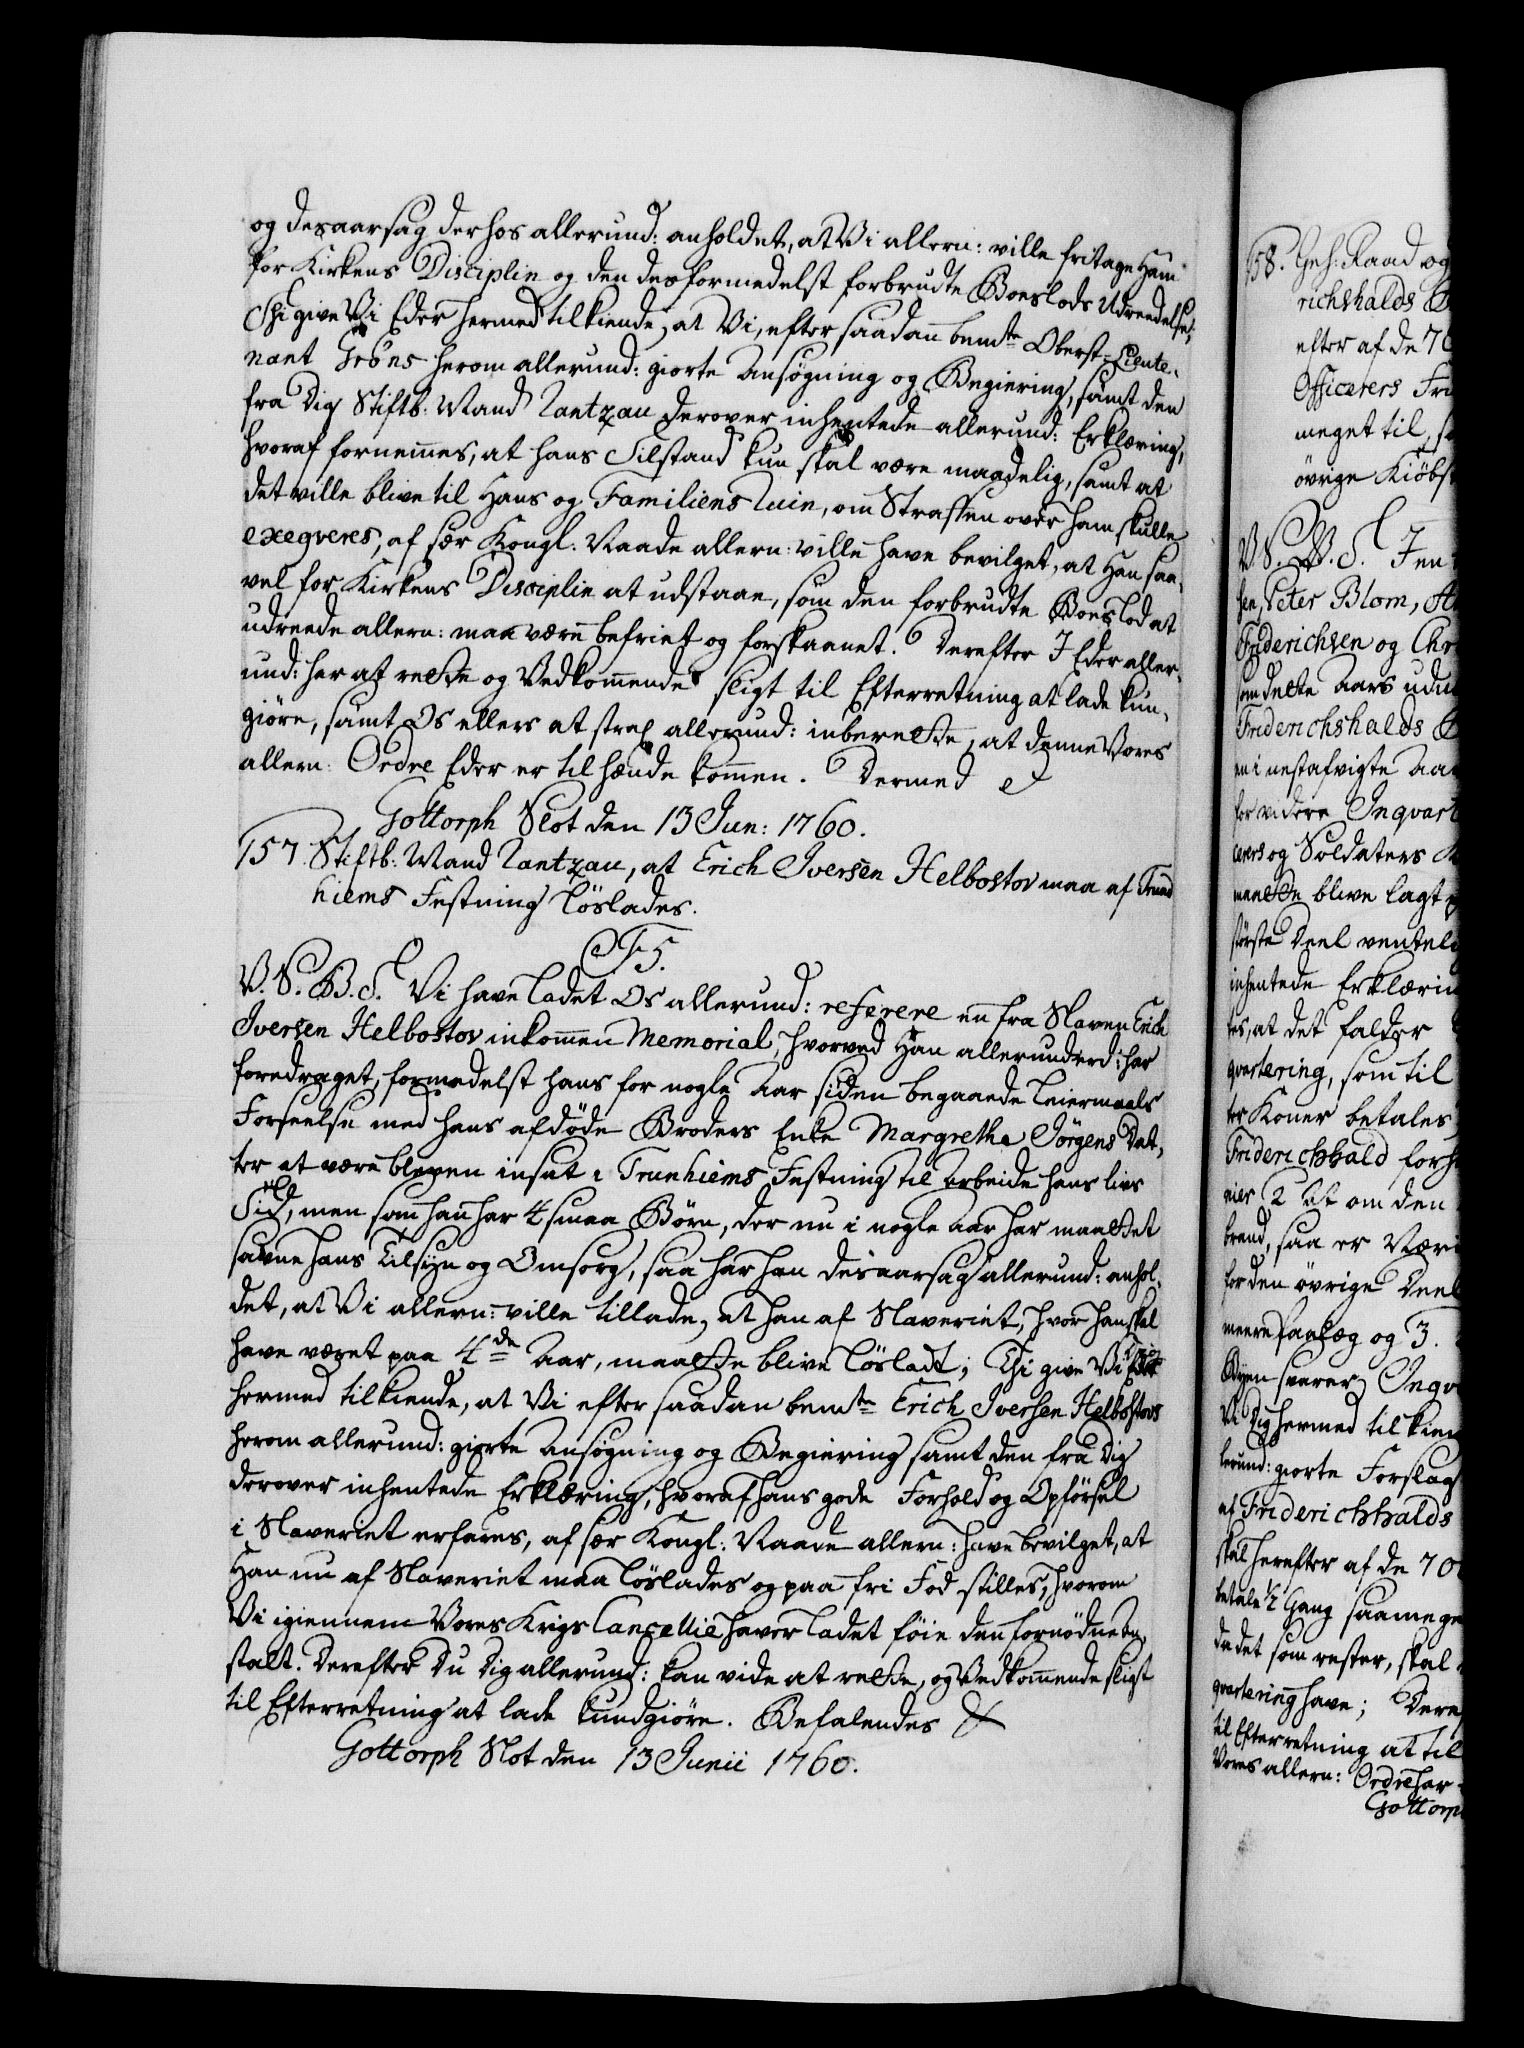 og desaarsag derhos allerund: anholdet, at Vi allern: ville fritage Ham
for Kirkens Disciplin og den desformedelst forbrudte Boeslods Udreedelse;
Thi give Vi Eder hermed tilkiende, at Vi, efter saadan bemte Oberst-Lieute-
nant Gröns herom allerund: giorte Ansøgning og Begiering, samt den
fra Dig Stiftb: Mand Rantzau derover inhentede allerund: Erklæring,
hvoraf fornemmes, at hans Tilstand kun skal være maadelig, samt at
det ville blive til Hans og Familiens Ruin, om Straffen over ham skulle
exeqveres, af sær Kongl: Naade allern: ville have bevilget, at Han saa-
vel for Kirkens Disciplin at udstaae, som den forbrudte Boeslod at
udreede allern: maa være befriet og forskaanet. Derefter I Eder aller-
und: har at rette og Vedkommende sligt til Efterretning at lade kun-
giöre, samt Os ellers at strax allerund: inberette, at denne Vores
allern: Ordre Eder er til hænde kommen. Dermed
Gottorph Slot den 13 Jun: 1760.
157. Stiftb: Mand Rantzau, at Erich Iversen Helbostov maa af Trund
hiems Festning löslades.
F5.
V. S. G. B. T. Vi have ladet Os allerund: referere en fra Slaven Erich
Iversen Helbostov inkommen Memorial, hvorved Han allerunderd: har
foredraget, formedelst hans for nogle Aar siden begaaede Leiermaals
Forseelse med hans afdöde Broders Enke Margretha Jörgens Dat-
ter at være bleven insat i Trunhiems Festning til Arbeide hans Livs
Tid, men som han har 4 smaa Börn, der nu i nogle Aar har maattet
savne hans Tilsyn og Omsorg, saa har han desaarsag allerund: anhol-
det, at Vi allern: ville tillade, at han af Slaveriet, hvor han skal
have været paa 4de Aar, maatte blive lösladt; Thi give Vi Dig
hermed tilkiende, at Vi efter saadan bemte Erich Iversen Helbostovs
herom allerund: giorte Ansøgning og Begiering samt den fra Dig
derover inhentede Erklæring, hvoraf hans gode Forhold og Opförsel
i Slaveriet erfares, af sær Kongl: Naade allern: have bevilget, at
Han nu af Slaveriet maa löslades og paa fri Fod stilles, hvorom
Vi igiennem Vores Krigs Cancellie haver ladet föie den fornödne An-
stalt. Derefter Du Dig allerund: kan vide at rette, og Vedkommende sligt
til Efterretning at lade kundgiöre. Befalendes
Gottorph Slot den 13 Junii 1760.
58. Geh: Raad og
richshalds
efter af de 70
Officerers Fri
meget til, s
övrige Kiöbst
V. S. G. B. T. I en
sen, Peter Blom,
Friderichsen og Chr
som dette Aars
Friderichshalds
en i nestafvigte Aar
for videre Inqvart
og Soldaters
maatte blive lagt
störste Deel
inhentede Erklærin
tes, at det falder
qvartering, som til
Koner betales
Friderichhald forh
2 at om den
brand, saa er Væri
for den övrige Deel
meere og 3.
Byen svarer Inqv
Vi Dig hermed tilkien
lerund: giorte Forslag
af Friderichhalds
skal herefter af de 70
betale 1/2 Gang saamege
det som rester, skal
qvartering have; Dere
til Efterretning at til
Vores allern: Ordre har
Gottorp